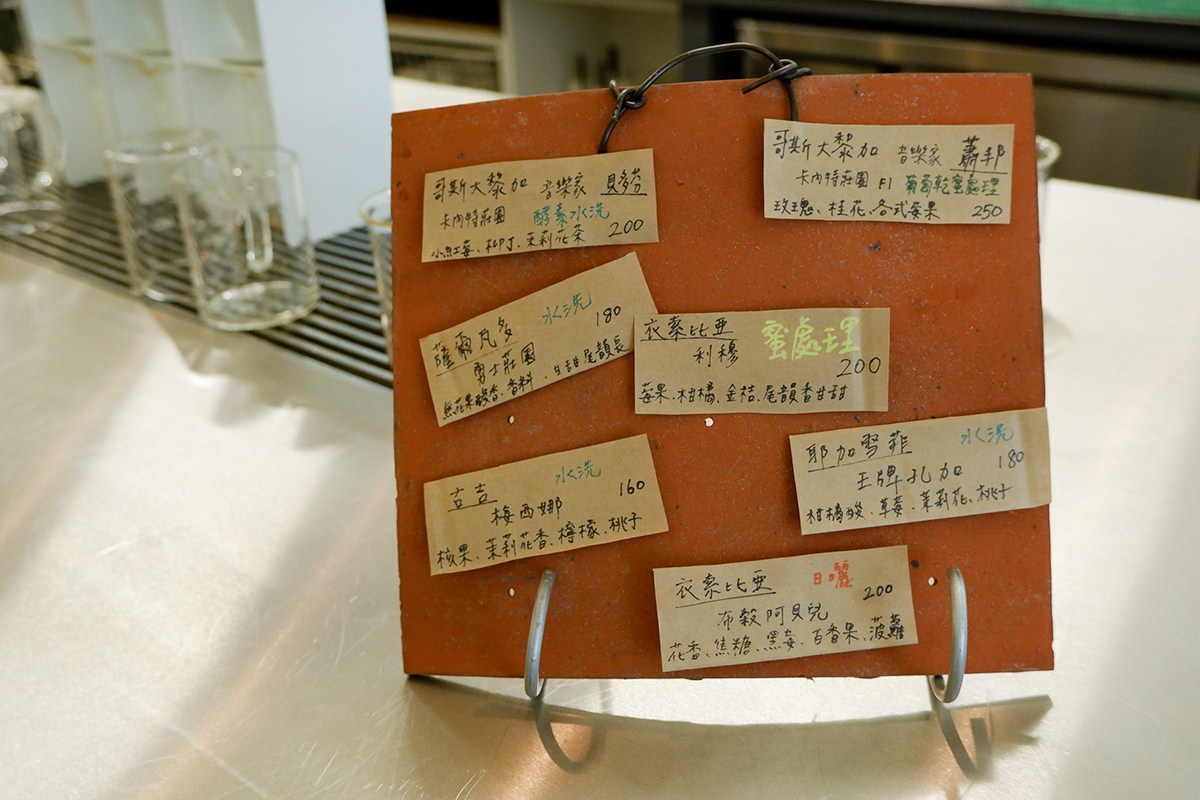 哥斯大黎加 音樂家 貝多芬
卡內特莊園 酵素水洗
小紅莓、柳丁、茉莉花茶 200
哥斯大黎加 音樂家 蕭邦
卡內特莊園 F1 葡萄乾蜜處理
玫瑰、桂花、各式莓果 250
薩爾瓦多 水洗 180
勇士莊園
無花果酸香、香料、甘甜尾韻長
衣索比亞 蜜處理
利穆 200
莓果、柑橘、金桔、尾韻香甘甜
古吉 水洗 160
梅西娜
核果、茉莉花香、檸檬、桃子
耶加雪菲 水洗
王牌孔加 180
柑橘酸、草莓、茉莉花、桃子
衣索比亞 日曬 200
布穀阿貝兒
花香、焦糖、黑莓、百香果、菠蘿